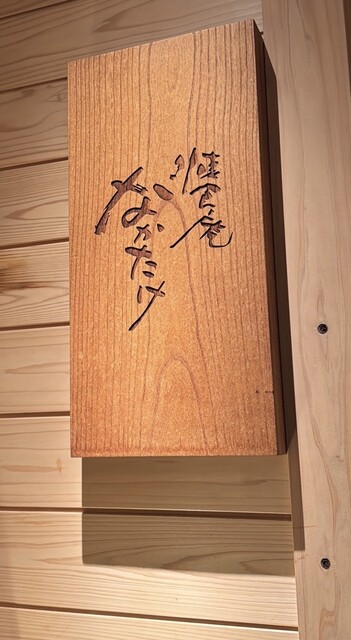 庵
なかたけ